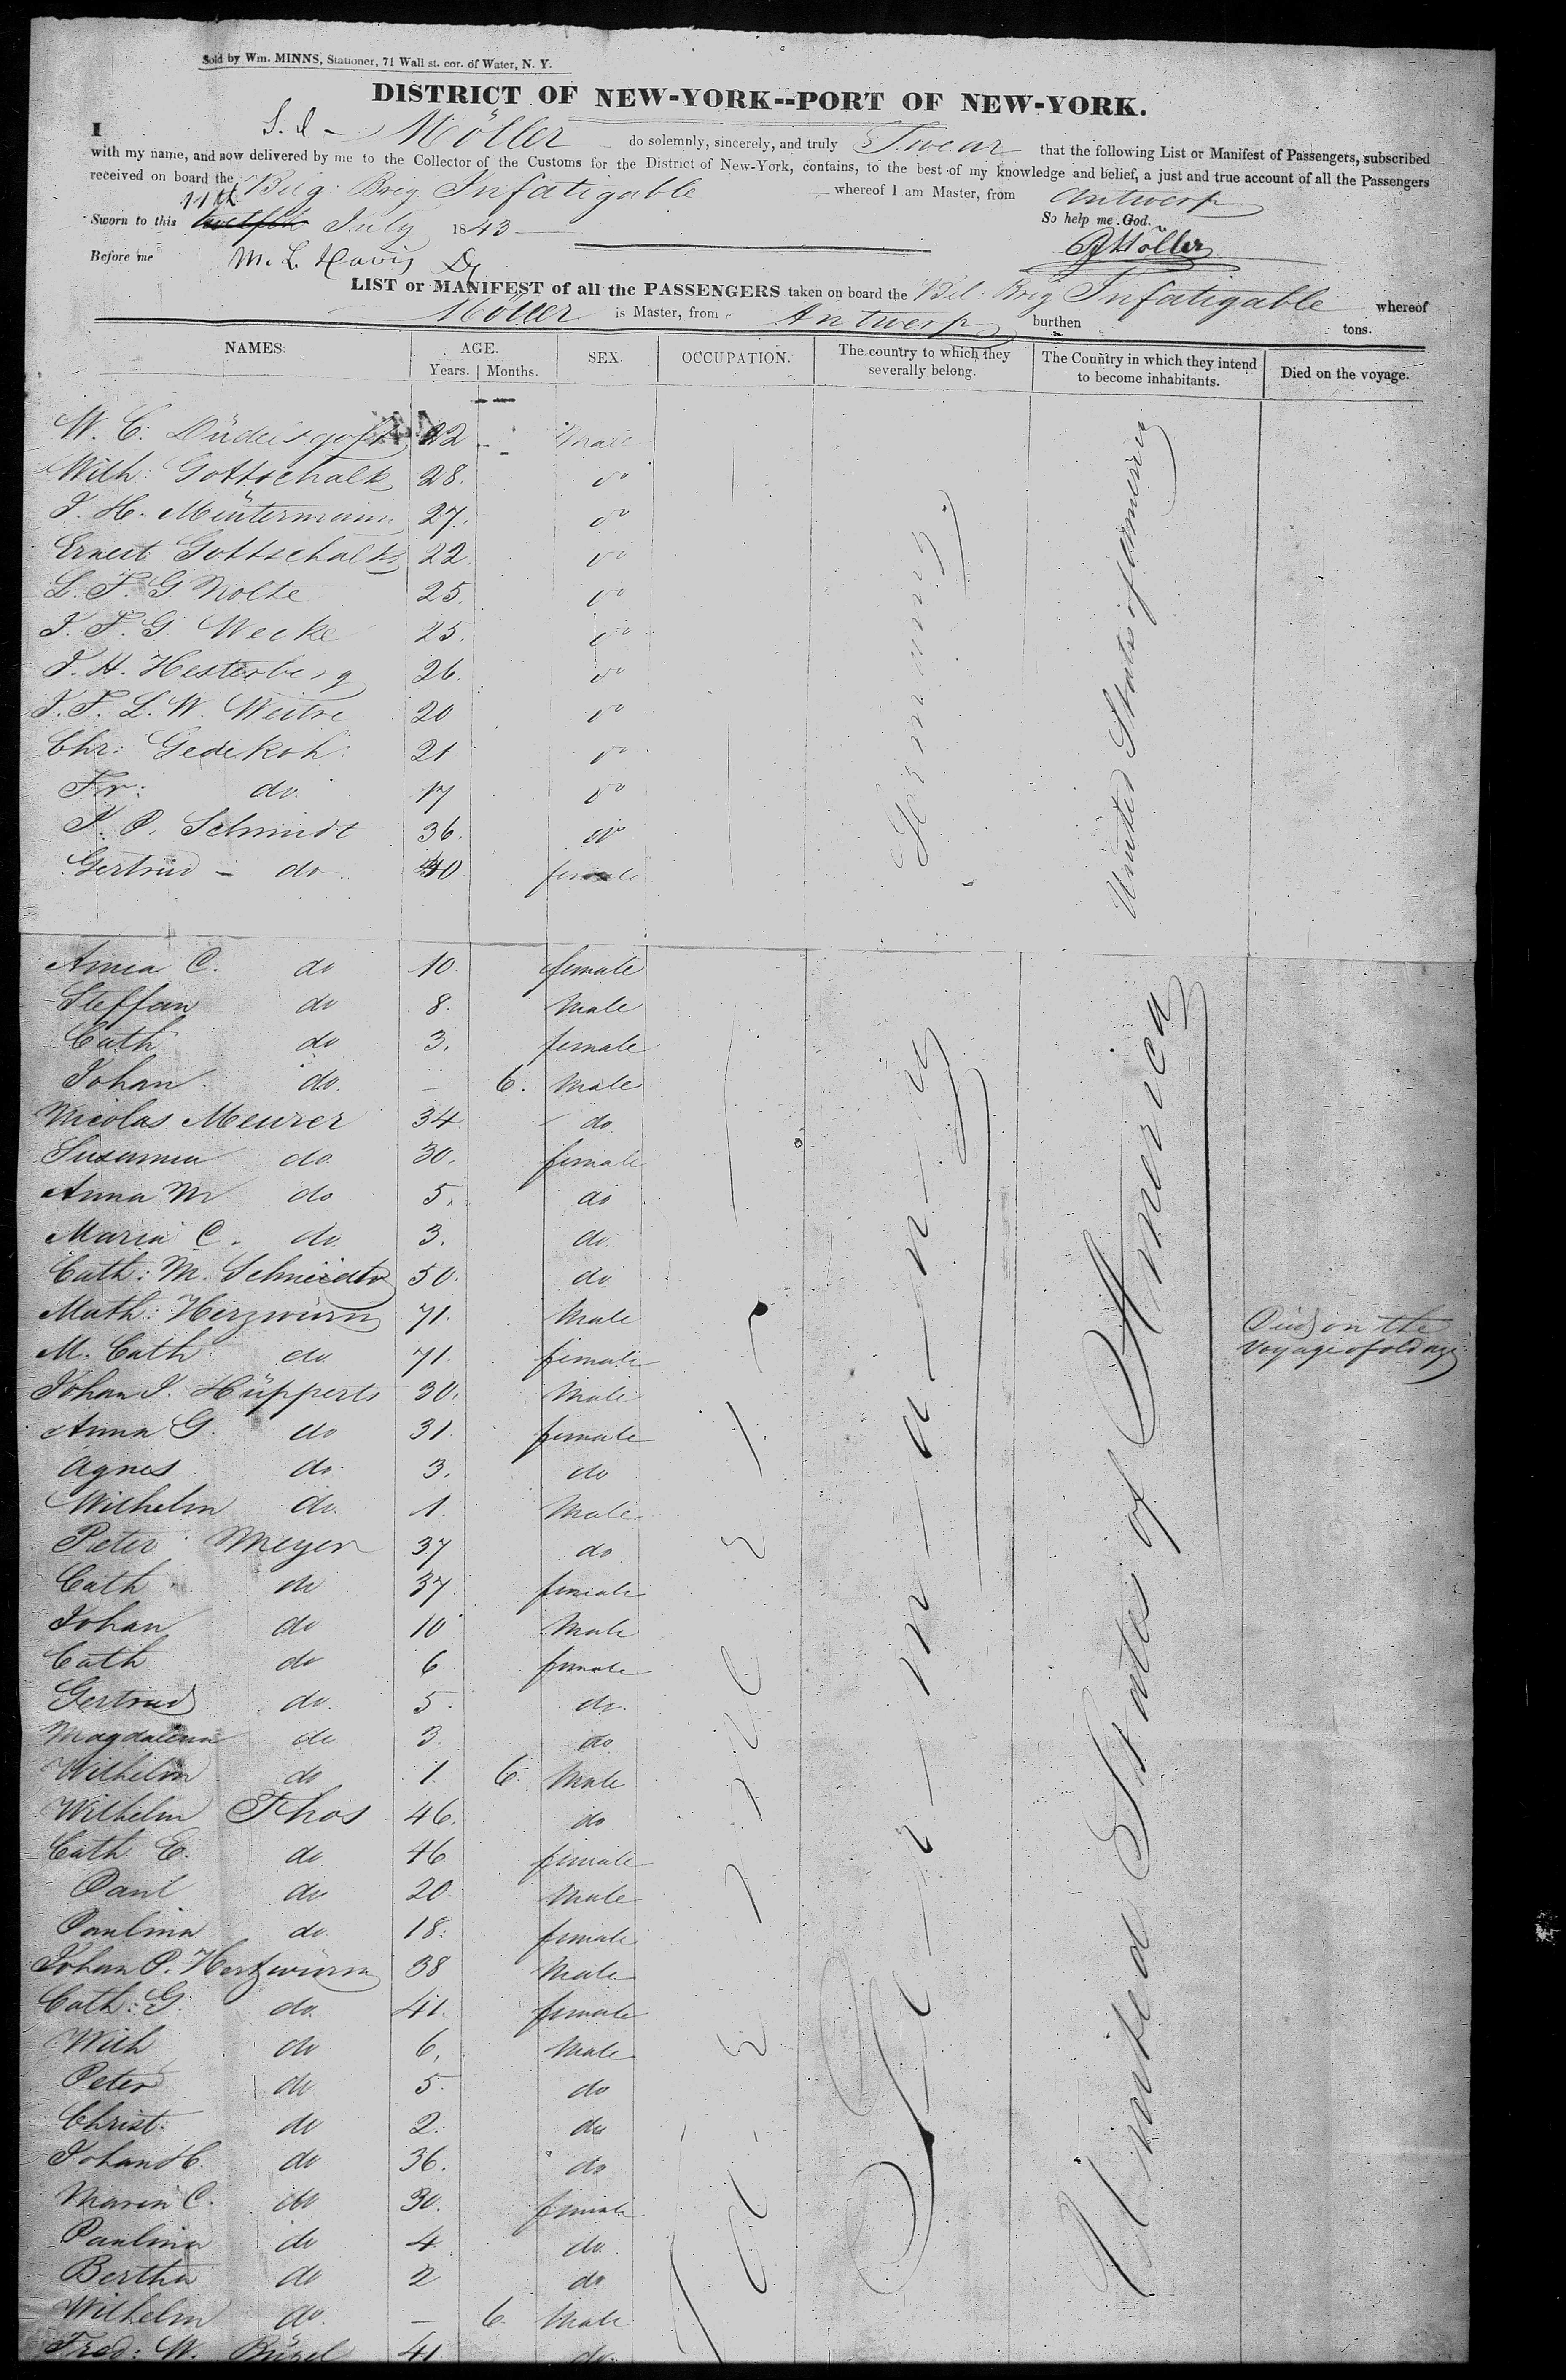 Sold by Wm. MINNS, Stationer, 71 Wall st. cor. of Water, N. Y.
DISTRICT OF NEW-YORK--PORT OF NEW-YORK.
I Möller do solemnly, sincerely, and truly Swear that the following List or Manifest of Passengers, subscribed
with my name, and now delivered by me to the Collector of the Customs for the District of New-York, contains, to the best of my knowledge and belief, a just and true account of all the Passengers
received on board the Brig Infatigable whereof I am Master, from Antwerp
11th
Sworn to this twelfth July 1843
So help me God.
Before me
Möller
LIST or MANIFEST of all the PASSENGERS taken on board the Bel: Brig Infatigable whereof
Möller is Master, from Antwerp burthen tons.
NAMES. AGE. Years. Months. SEX. OCCUPATION. The country to which they severally belong. The Country in which they intend to become inhabitants. Died on the voyage.
W. C. 22 Male
Wilh: Gottschalk 28. do
J. H. Müntermann 27. do
Ernest Gottschalk 22. do
L. F. G. Nolte 25. do
J. F. G. Weeke 25. do
J. H. Hesterberg 26. do
J. F. L. W. 20 do
Chr: Gedekoh 21 do
Fr: do. 17 do
J. P. Schmidt 36. do
Gertrud - do. 40 female
Germany
United States of America
Anna C. do 10. female
Steffan do 8. Male
Cath do 3. female
Johan do. — 6. Male
Nicolas Meurer 34 do
Susanna do. 30. female
Anna M do 5. do
Maria C. do. 3. do.
Cath: M. 50. do
Math: Herzwurm 71. Male Died on the
voyage of old age
M. Cath do. 71. female
Johan J. Hüpperts 30. Male
Anna G. do 31. female
Agnes do. 3. do
Wilhelm do. 1. Male
Peter Meyer 37 do
Cath do 37 female
Johan do 10 Male
Cath do 6 female
Gertrud do. 5. do.
Magdalena do 3. do
Wilhelm do 1. 6. Male
Wilhelm Thos 46. do
Cath E. do 46 female
Paul do 20. Male
Paulina do. 18. female
Johan P. Hertzwurm 38 Male
Cath: G. do. 41. female
Wilh do 6. Male
Peter do 5. do
Christ. do 2. do
Johan H. do 36. do
Maria C. do 30. female
Paulina do 4 do.
Bertha do 2 do
Wilhelm do. — 6. Male
Fred: W. Bügel 41 do.
Germany
United States of America